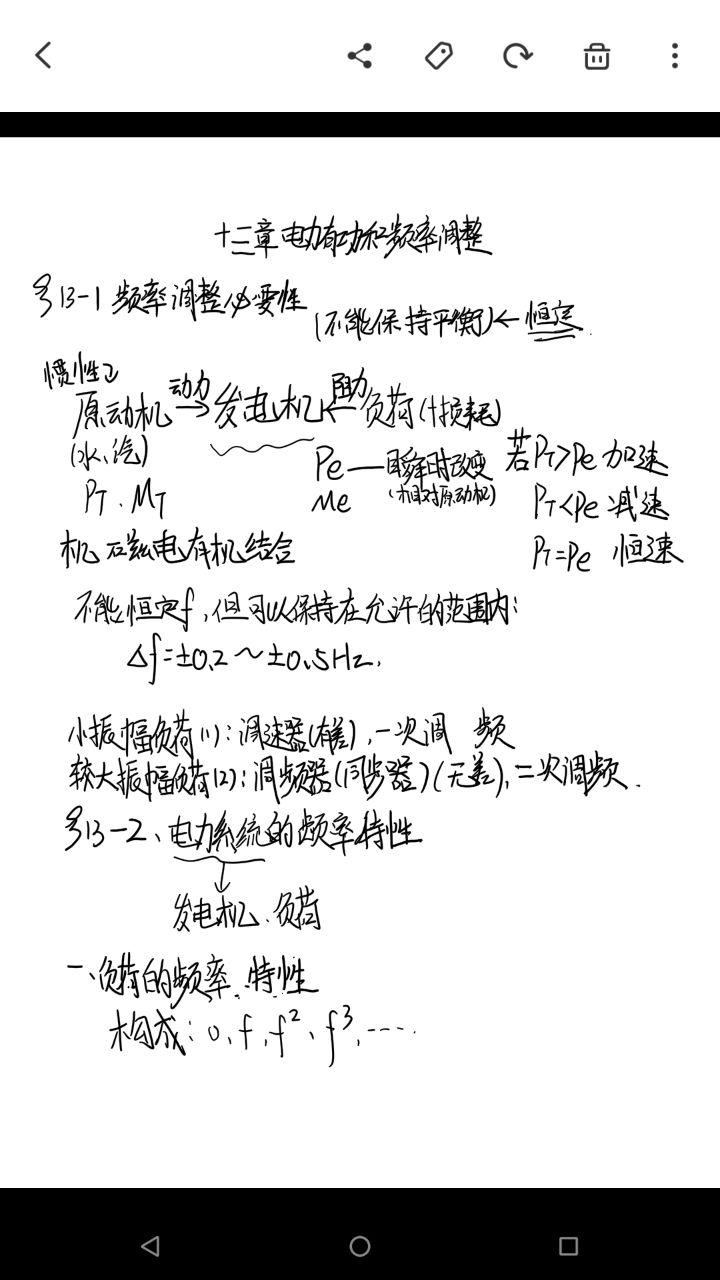 十三章电力有功和频率调整
§13-1 频率调整必要性
(不能保持平衡)←恒定.
惯性
原动机 动力→ 发电机 ←阻力 负荷(+损耗)
(水、汽)
Pe—瞬时改变 若PT>Pe 加速
PT、MT Me (相对原动机) PT<Pe 减速
机磁电有机结合 PT=Pe 恒速
不能恒定f,但可以保持在允许的范围内:
Δf=±0.2~±0.5Hz.
小振幅负荷(1):调速器(有差),一次调频
较大振幅负荷(2):调频器(同步器)(无差),二次调频.
§13-2、电力系统的频率特性
↓
发电机、负荷
一、负荷的频率特性
构成:0、f、f²、f³、....